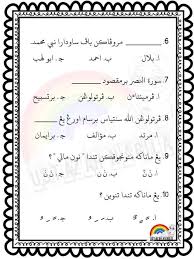 6. ________ مروڤاكن باڤ ساودارا نبي محمد.
ا. بلال ب. احمد ج. ابو لهب
7. سورة النصر برمقصود ________
ا. ڤرمينتاءن ب. ڤرتولوڠن ج. برتسبيح
8. ڤرتولوڠن الله سنتياس برسام اورڠ يڠ ________
ا. مرتد ب. مؤلف ج. برايمان
9. يڠ ماناكه منونجوقكن تندا " نون ماتي "؟
10. يڠ ماناكه تندا تنوين ؟